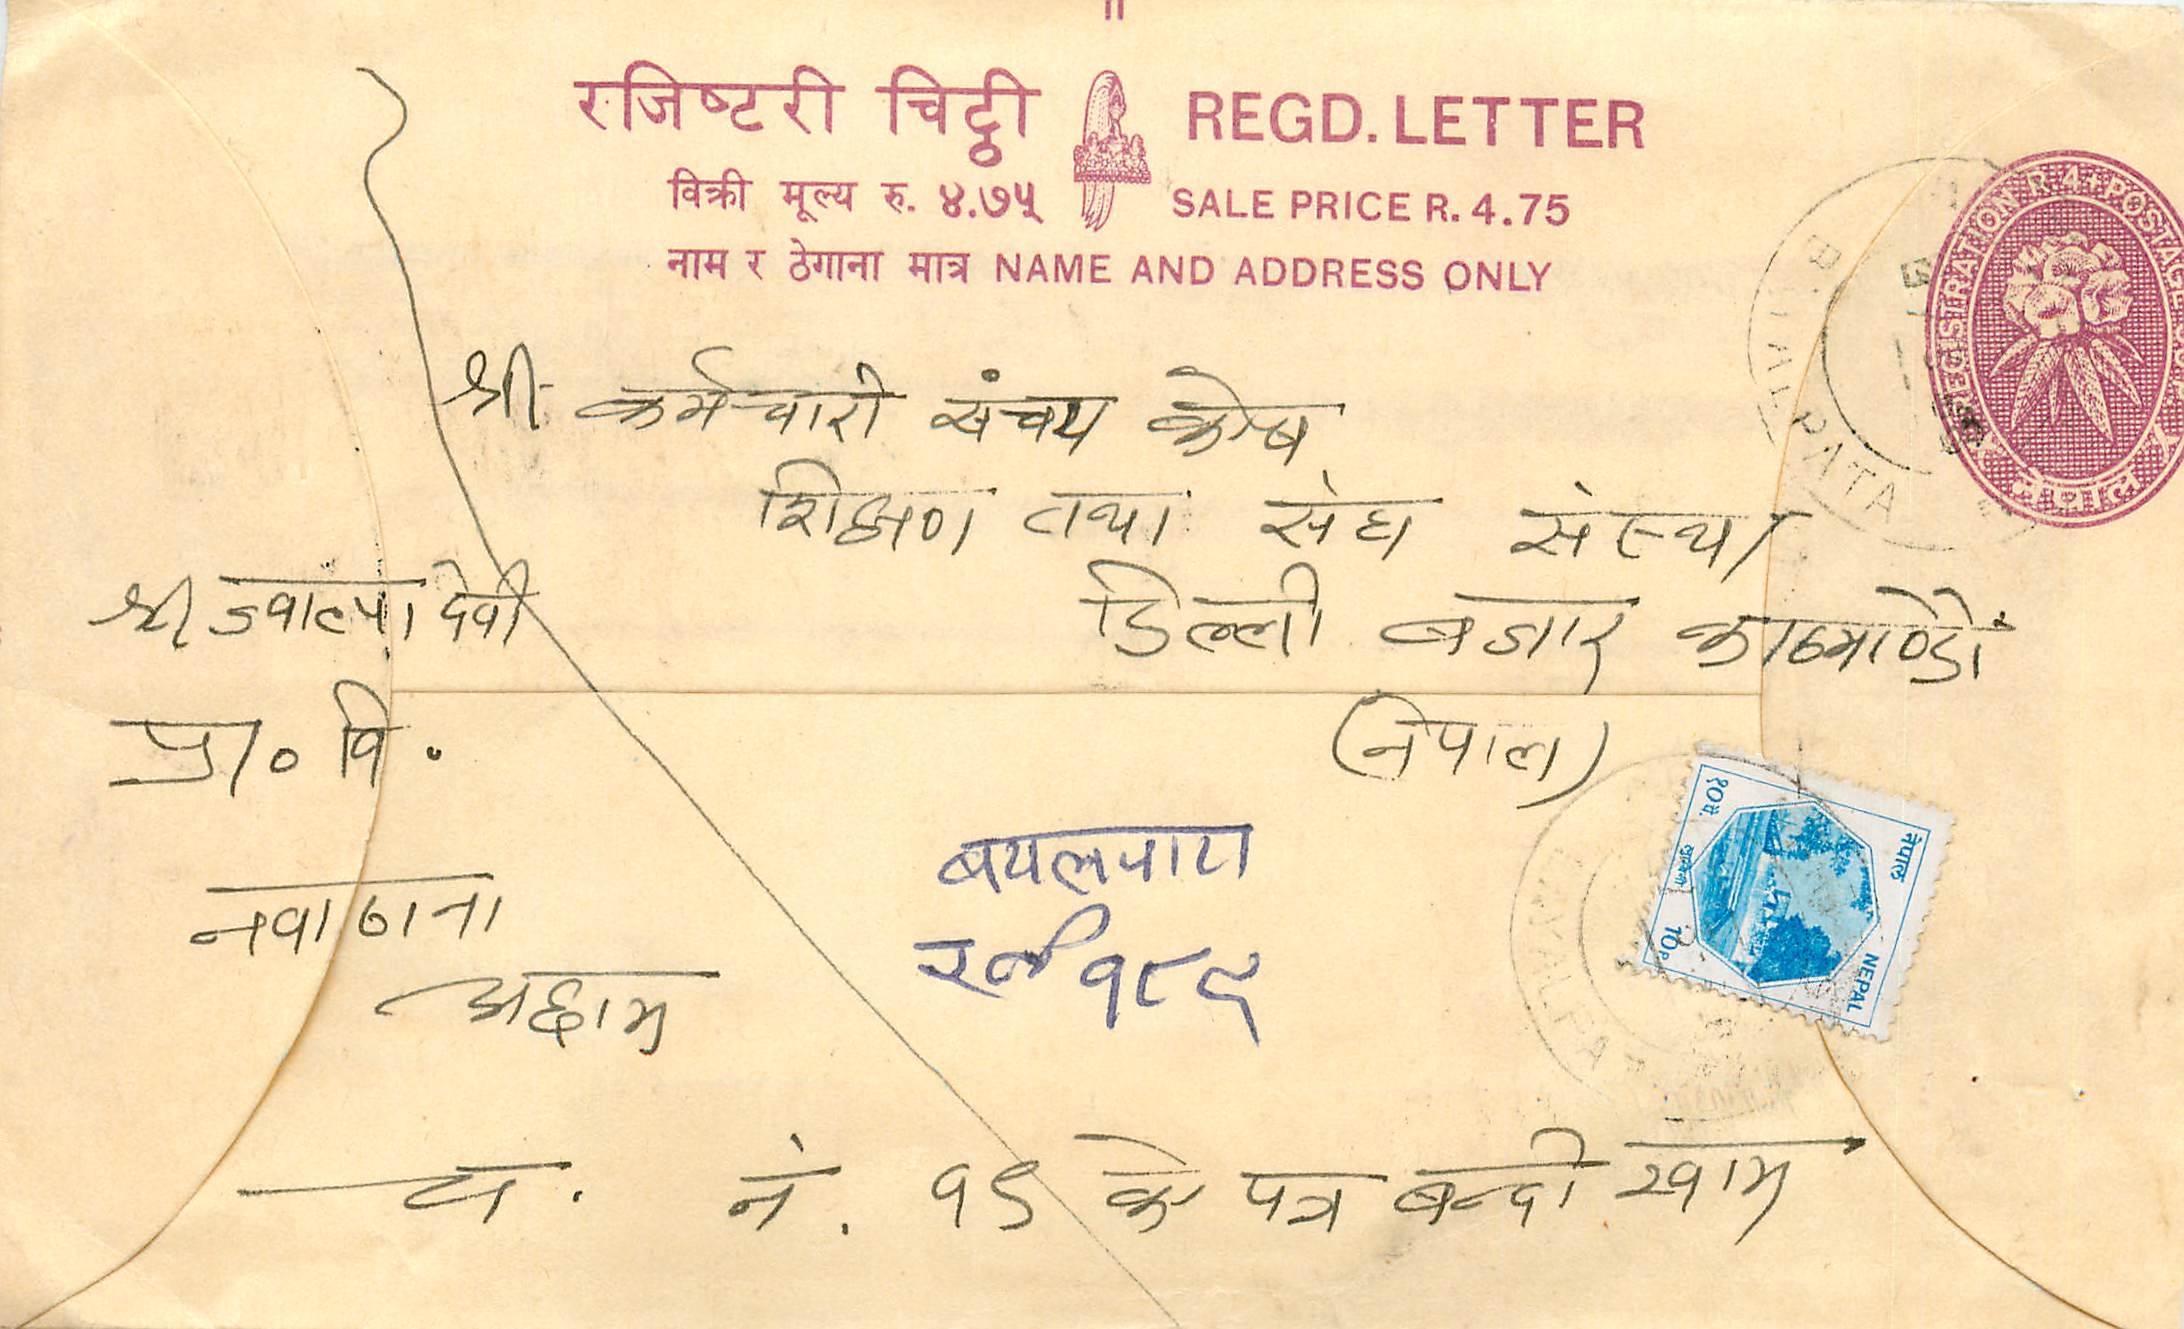 रजिष्टरी चिट्ठी REGD. LETTER
विक्री मूल्य रु. ४.७५ SALE PRICE R. 4.75
नाम र ठेगाना मात्र NAME AND ADDRESS ONLY
REGISTRATION R. 4+POSTAGE
नेपाल
BAYALPATA
श्री कर्मचारी संचय कोष
शिक्षण तथा संघ संस्था
डिल्ली बजार काठमाण्डौं
(नेपाल)
श्री ज्वाल्पा देवी
प्रा० वि.
नवाठाना
अछाम
बयलपाटा
र नं १८९
नेपाल
१० पै.
NEPAL
10P
BAYALPATA
च. नं. १९ के पत्र बन्दी खाम